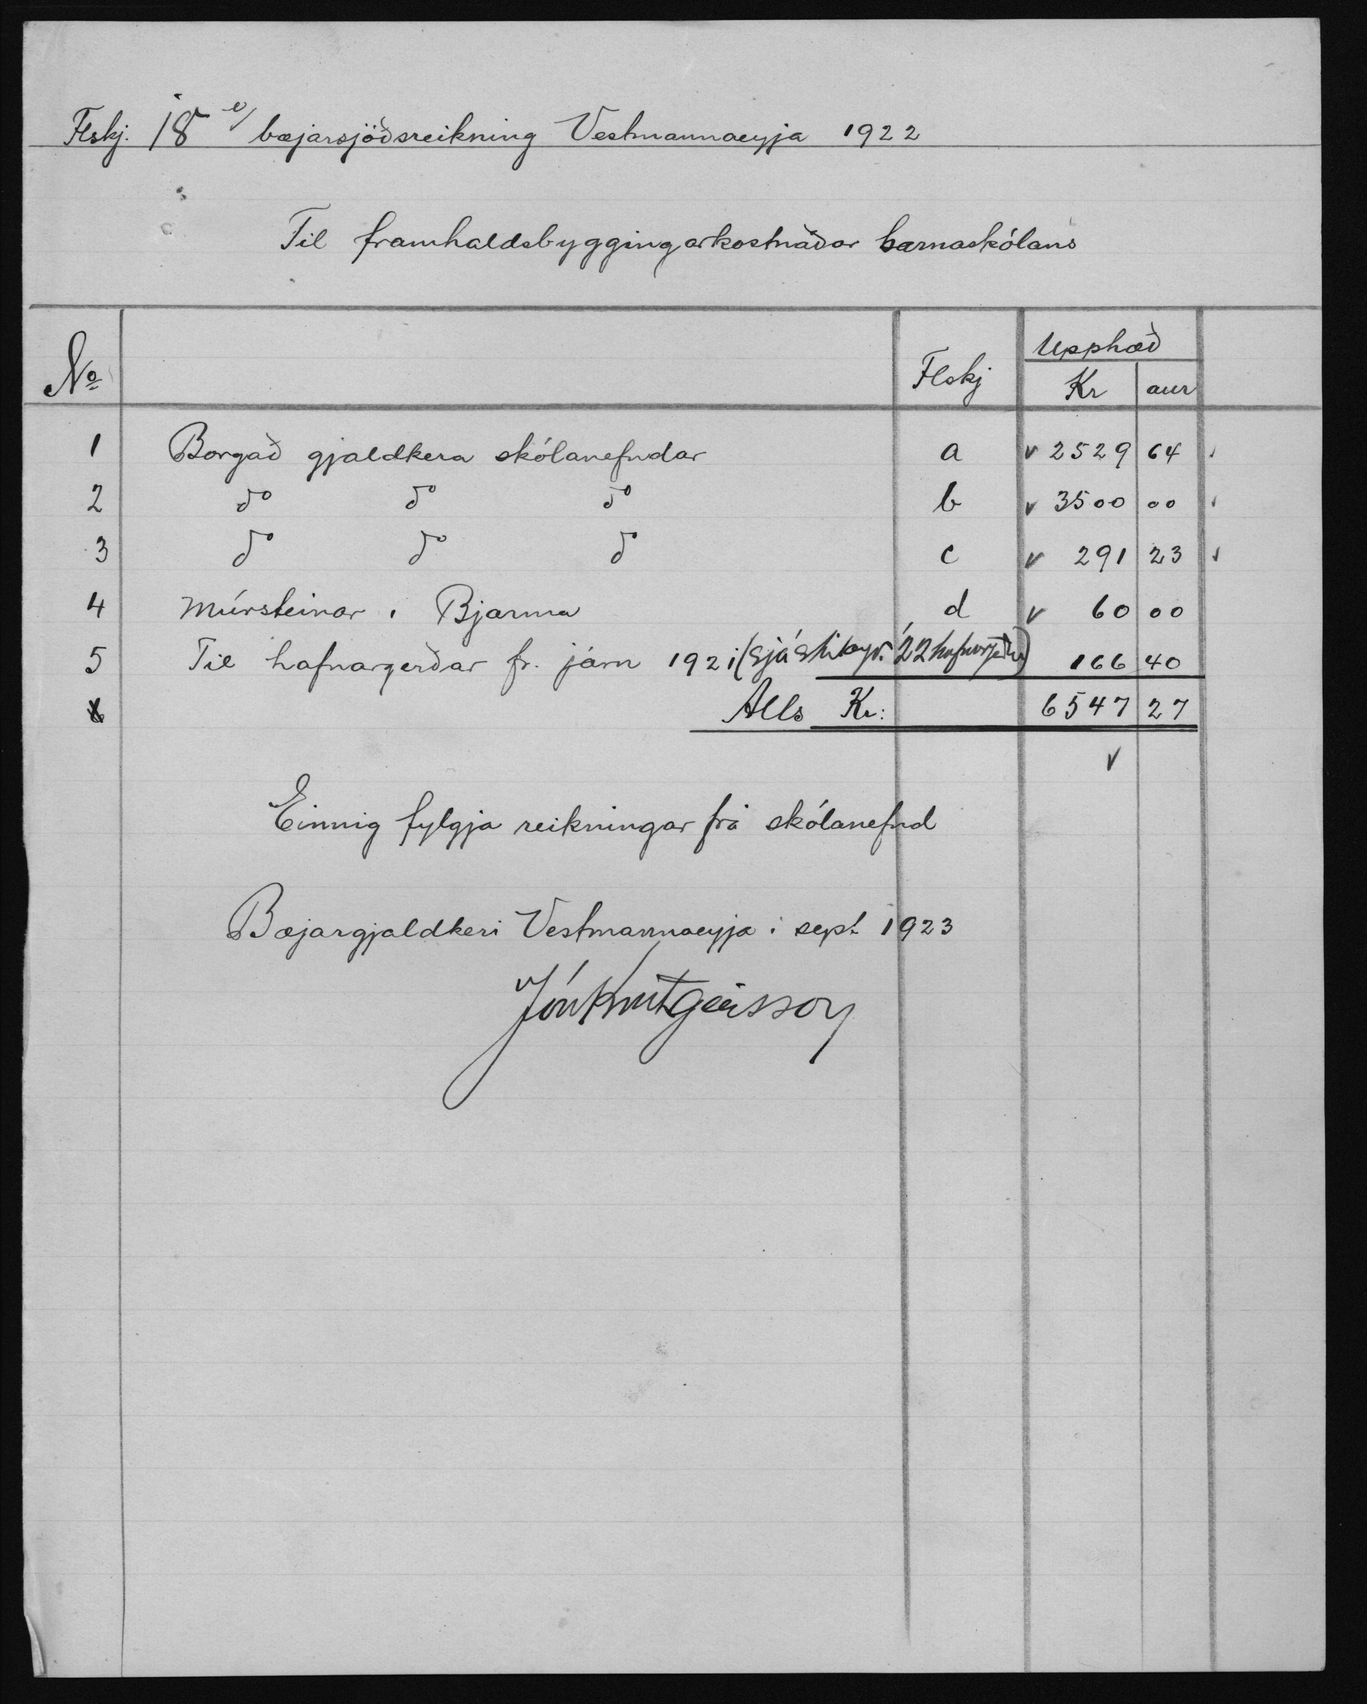 Flskj. 18 e/ bæjarsjóðsreikning Vestmannaeyja 1922
Til framhaldsbyggingarkostnaðar barnaskólans
No Flskj Upphæð
Kr aur
1 Borgað gjaldkera skólanefndar a v 2529 64
2 do do do b v 3500 00
3 do do do c v 291 23
4 Múrsteinar í Bjarma d v 60 00
5 Til hafnargerðar fr. járn 1921 (sjá '22 166 40
Alls Kr: 6547 27
v
Einnig fylgja reikningar frá skólanefnd
Bæjargjaldkeri Vestmannaeyja í sept 1923
Jón